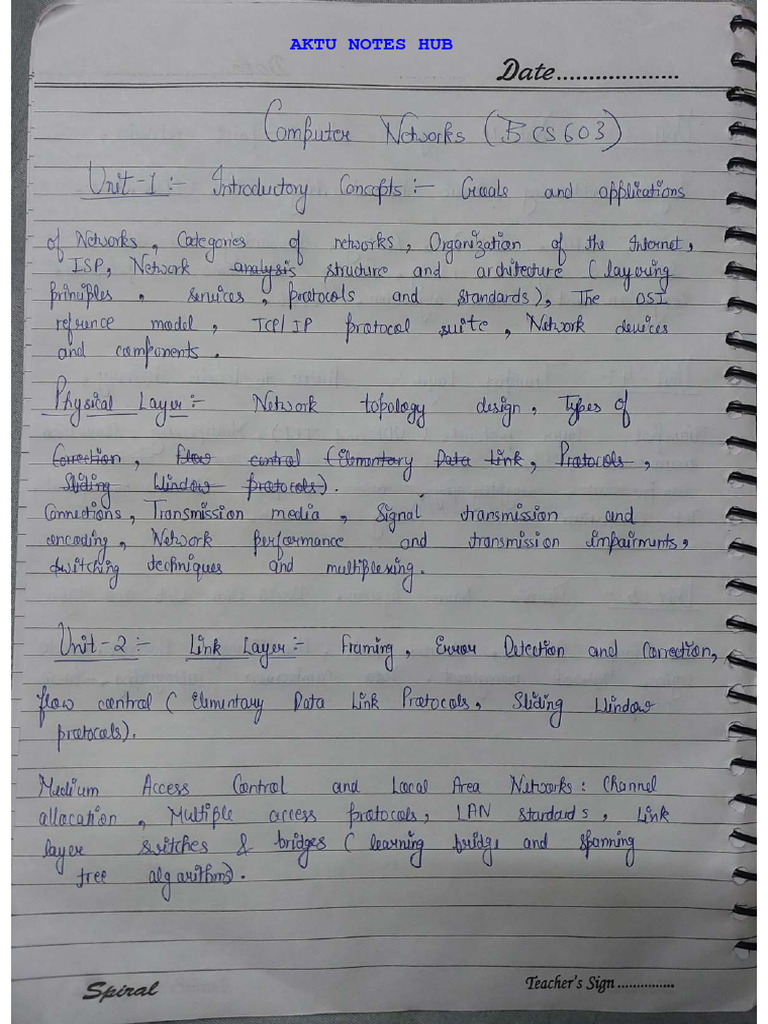 AKTU NOTES HUB
Date...................
Computer Networks (BCS603)
Unit-1:- Introductory Concepts:- Goals and applications
of Networks, Categories of networks, Organization of the Internet,
ISP, Network analysis structure and architecture (layering
principles, services, protocols and standards), The OSI
refrence model, TCP/IP protocol suite, Network devices
and components.
Physical Layer:- Network topology design, Types of
Correction, flow control (Elementary Data Link, Protocols,
Sliding Window protocols).
Connections, Transmission media, Signal transmission and
encoding, Network performance and transmission impairments,
switching techniques and multiplexing.
Unit-2:- Link Layer:- Framing, Error Detection and Correction,
flow control (Elementary Data Link Protocols, Sliding Window
protocols).
Medium Access Control and Local Area Networks: Channel
allocation, Multiple access protocols, LAN standards, Link
layer switches & bridges (learning bridge and spanning
tree algorithms).
Spiral
Teacher's Sign..............